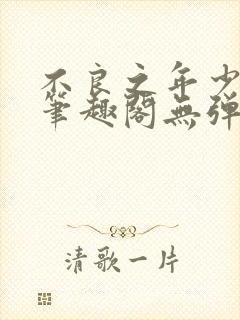 不良之年少
筆趣閣無弹
清歌一片